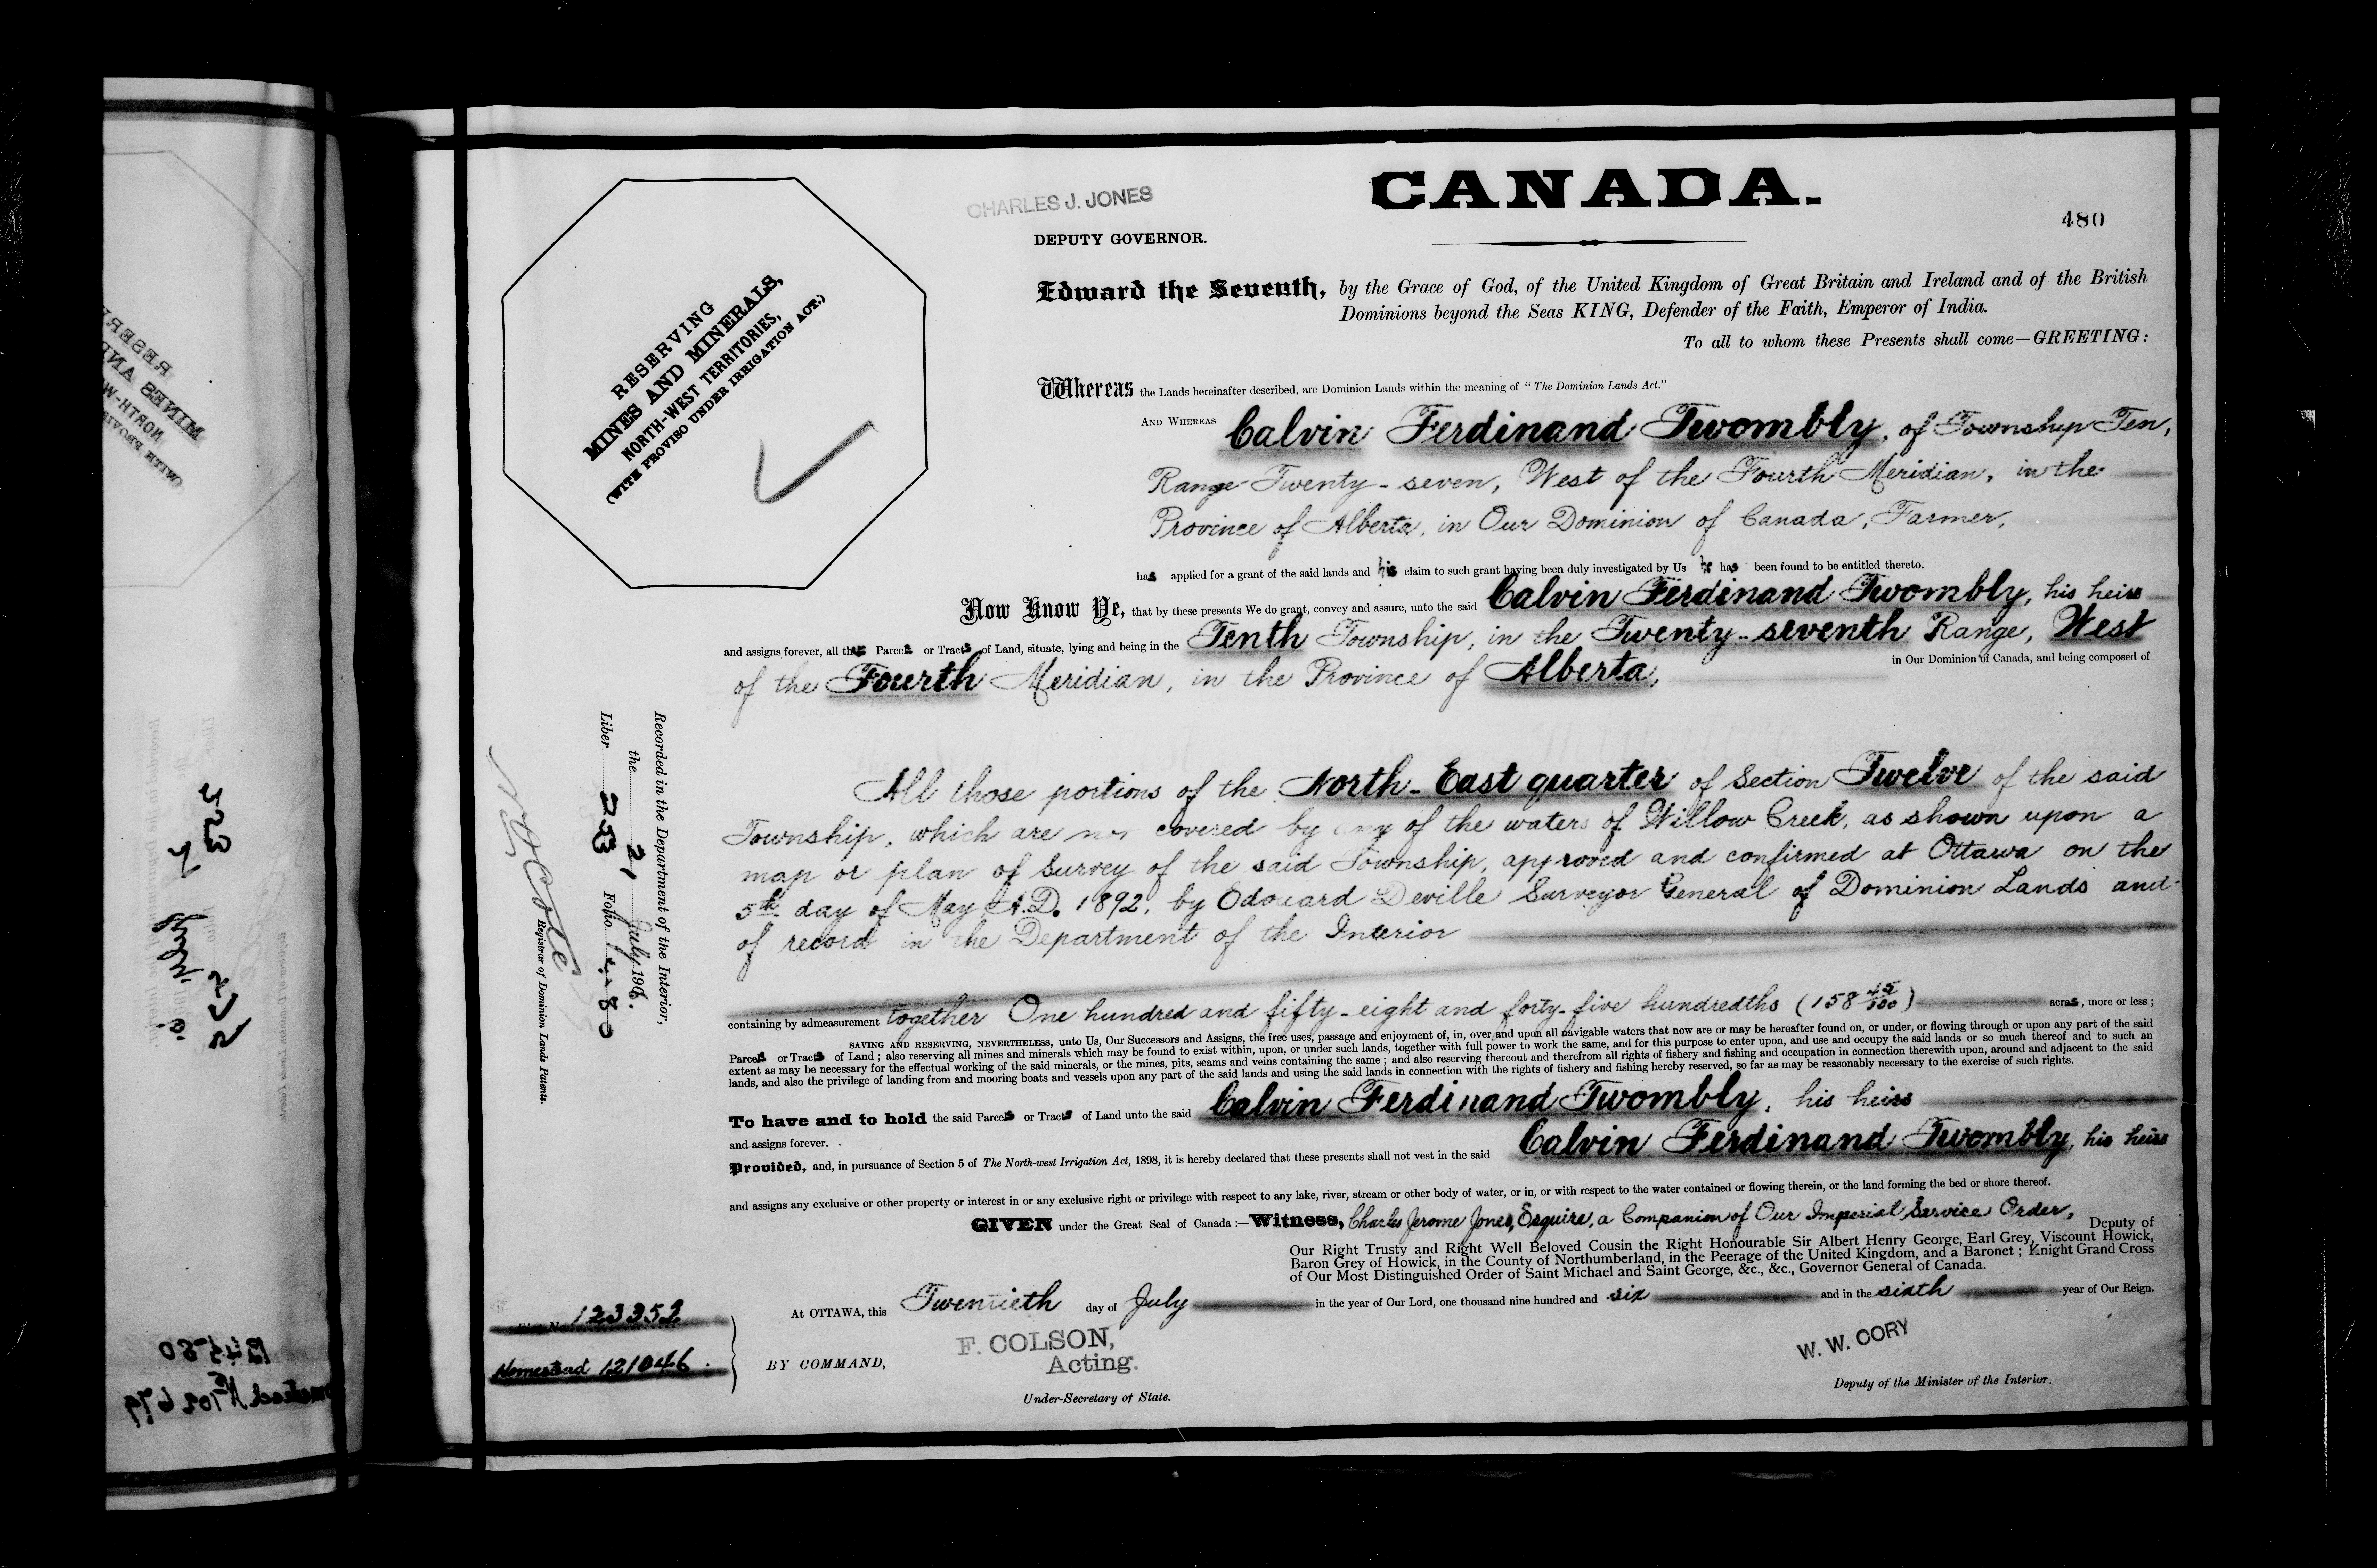 CANADA.
480
CHARLES J. JONES
DEPUTY GOVERNOR.
RESERVING
MINES AND MINERALS,
NORTH-WEST TERRITORIES,
(WITH PROVISO UNDER IRRIGATION ACT.)
Edward the Seventh, by the Grace of God, of the United Kingdom of Great Britain and Ireland and of the British
Dominions beyond the Seas KING, Defender of the Faith, Emperor of India.
To all to whom these Presents shall come—GREETING:
Whereas the Lands hereinafter described, are Dominion Lands within the meaning of "The Dominion Lands Act."
AND WHEREAS Calvin Ferdinand Twombly, of Township Ten,
Range Twenty-seven, West of the Fourth Meridian, in the
Province of Alberta, in Our Dominion of Canada, Farmer,
has applied for a grant of the said lands and his claim to such grant having been duly investigated by Us he has been found to be entitled thereto.
Now Know Ye, that by these presents We do grant, convey and assure, unto the said Calvin Ferdinand Twombly, his heirs
and assigns forever, all those Parcels or Tracts of Land, situate, lying and being in the Tenth Township, in the Twenty-seventh Range, West
of the Fourth Meridian, in the Province of Alberta, in Our Dominion of Canada, and being composed of
All those portions of the North-East quarter of Section Twelve of the said
Township, which are not covered by any of the waters of Willow Creek, as shown upon a
map or plan of Survey of the said Township, approved and confirmed at Ottawa on the
5th day of May A.D. 1892, by Edouard Deville Surveyor General of Dominion Lands and
of record in the Department of the Interior
containing by admeasurement together One hundred and fifty-eight and forty-five hundredths (158 45/100) acres, more or less;
SAVING AND RESERVING, NEVERTHELESS, unto Us, Our Successors and Assigns, the free uses, passage and enjoyment of, in, over and upon all navigable waters that now are or may be hereafter found on, or under, or flowing through or upon any part of the said
Parcels or Tracts of Land; also reserving all mines and minerals which may be found to exist within, upon, or under such lands, together with full power to work the same, and for this purpose to enter upon, and use and occupy the said lands or so much thereof and to such an
extent as may be necessary for the effectual working of the said minerals, or the mines, pits, seams and veins containing the same; and also reserving thereout and therefrom all rights of fishery and fishing and occupation in connection therewith upon, around and adjacent to the said
lands, and also the privilege of landing from and mooring boats and vessels upon any part of the said lands and using the said lands in connection with the rights of fishery and fishing hereby reserved, so far as may be reasonably necessary to the exercise of such rights.
To have and to hold the said Parcels or Tracts of Land unto the said Calvin Ferdinand Twombly, his heirs
and assigns forever.
Provided, and, in pursuance of Section 5 of The North-west Irrigation Act, 1898, it is hereby declared that these presents shall not vest in the said Calvin Ferdinand Twombly, his heirs
and assigns any exclusive or other property or interest in or any exclusive right or privilege with respect to any lake, river, stream or other body of water, or in, or with respect to the water contained or flowing therein, or the land forming the bed or shore thereof.
GIVEN under the Great Seal of Canada:—Witness, Charles Jerome Jones, Esquire, a Companion of Our Imperial Service Order, Deputy of
Our Right Trusty and Right Well Beloved Cousin the Right Honourable Sir Albert Henry George, Earl Grey, Viscount Howick,
Baron Grey of Howick, in the County of Northumberland, in the Peerage of the United Kingdom, and a Baronet; Knight Grand Cross
of Our Most Distinguished Order of Saint Michael and Saint George, &c., &c., Governor General of Canada.
At OTTAWA, this Twentieth day of July in the year of Our Lord, one thousand nine hundred and six and in the sixth year of Our Reign.
BY COMMAND,
F. COLSON,
Acting.
Under-Secretary of State.
W. W. CORY
Deputy of the Minister of the Interior.
123352
Homestead 121046.
Recorded in the Department of the Interior,
the 21 July 1906.
Liber 253 Folio 480
N. O. Coté
Registrar of Dominion Lands Patents.